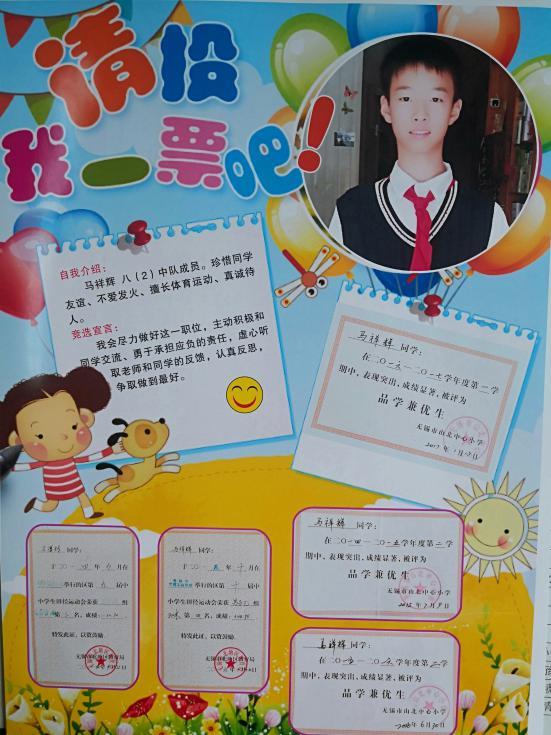 请投
我一票吧!
自我介绍:
马祥辉 八(2)中队成员。珍惜同学
友谊、不爱发火、擅长体育运动、真诚待
人。
竞选宣言:
我会尽力做好这一职位,主动积极和
同学交流、勇于承担应负的责任,虚心听
取老师和同学的反馈,认真反思,
争取做到最好。
马祥辉 同学:
在二〇一六—二〇一七学年度第二学
期中,表现突出,成绩显著,被评为
品学兼优生
无锡市山北中心小学
马祥辉 同学:
在二〇一四—二〇一五学年度第二学
期中,表现突出,成绩显著,被评为
品学兼优生
无锡市山北中心小学
同学:
于二〇一 年 月在
举行的区第 届中
小学生田径运动会荣获 组
第 名,成绩
特发此证,以资鼓励
马祥辉 同学:
于二〇一 年十月在
举行的区第十届中
小学生田径运动会荣获 组
第 名,成绩
特发此证,以资鼓励
马祥辉 同学:
在二〇 —二〇 学年度第二学
期中,表现突出,成绩显著,被评为
品学兼优生
无锡市山北中心小学